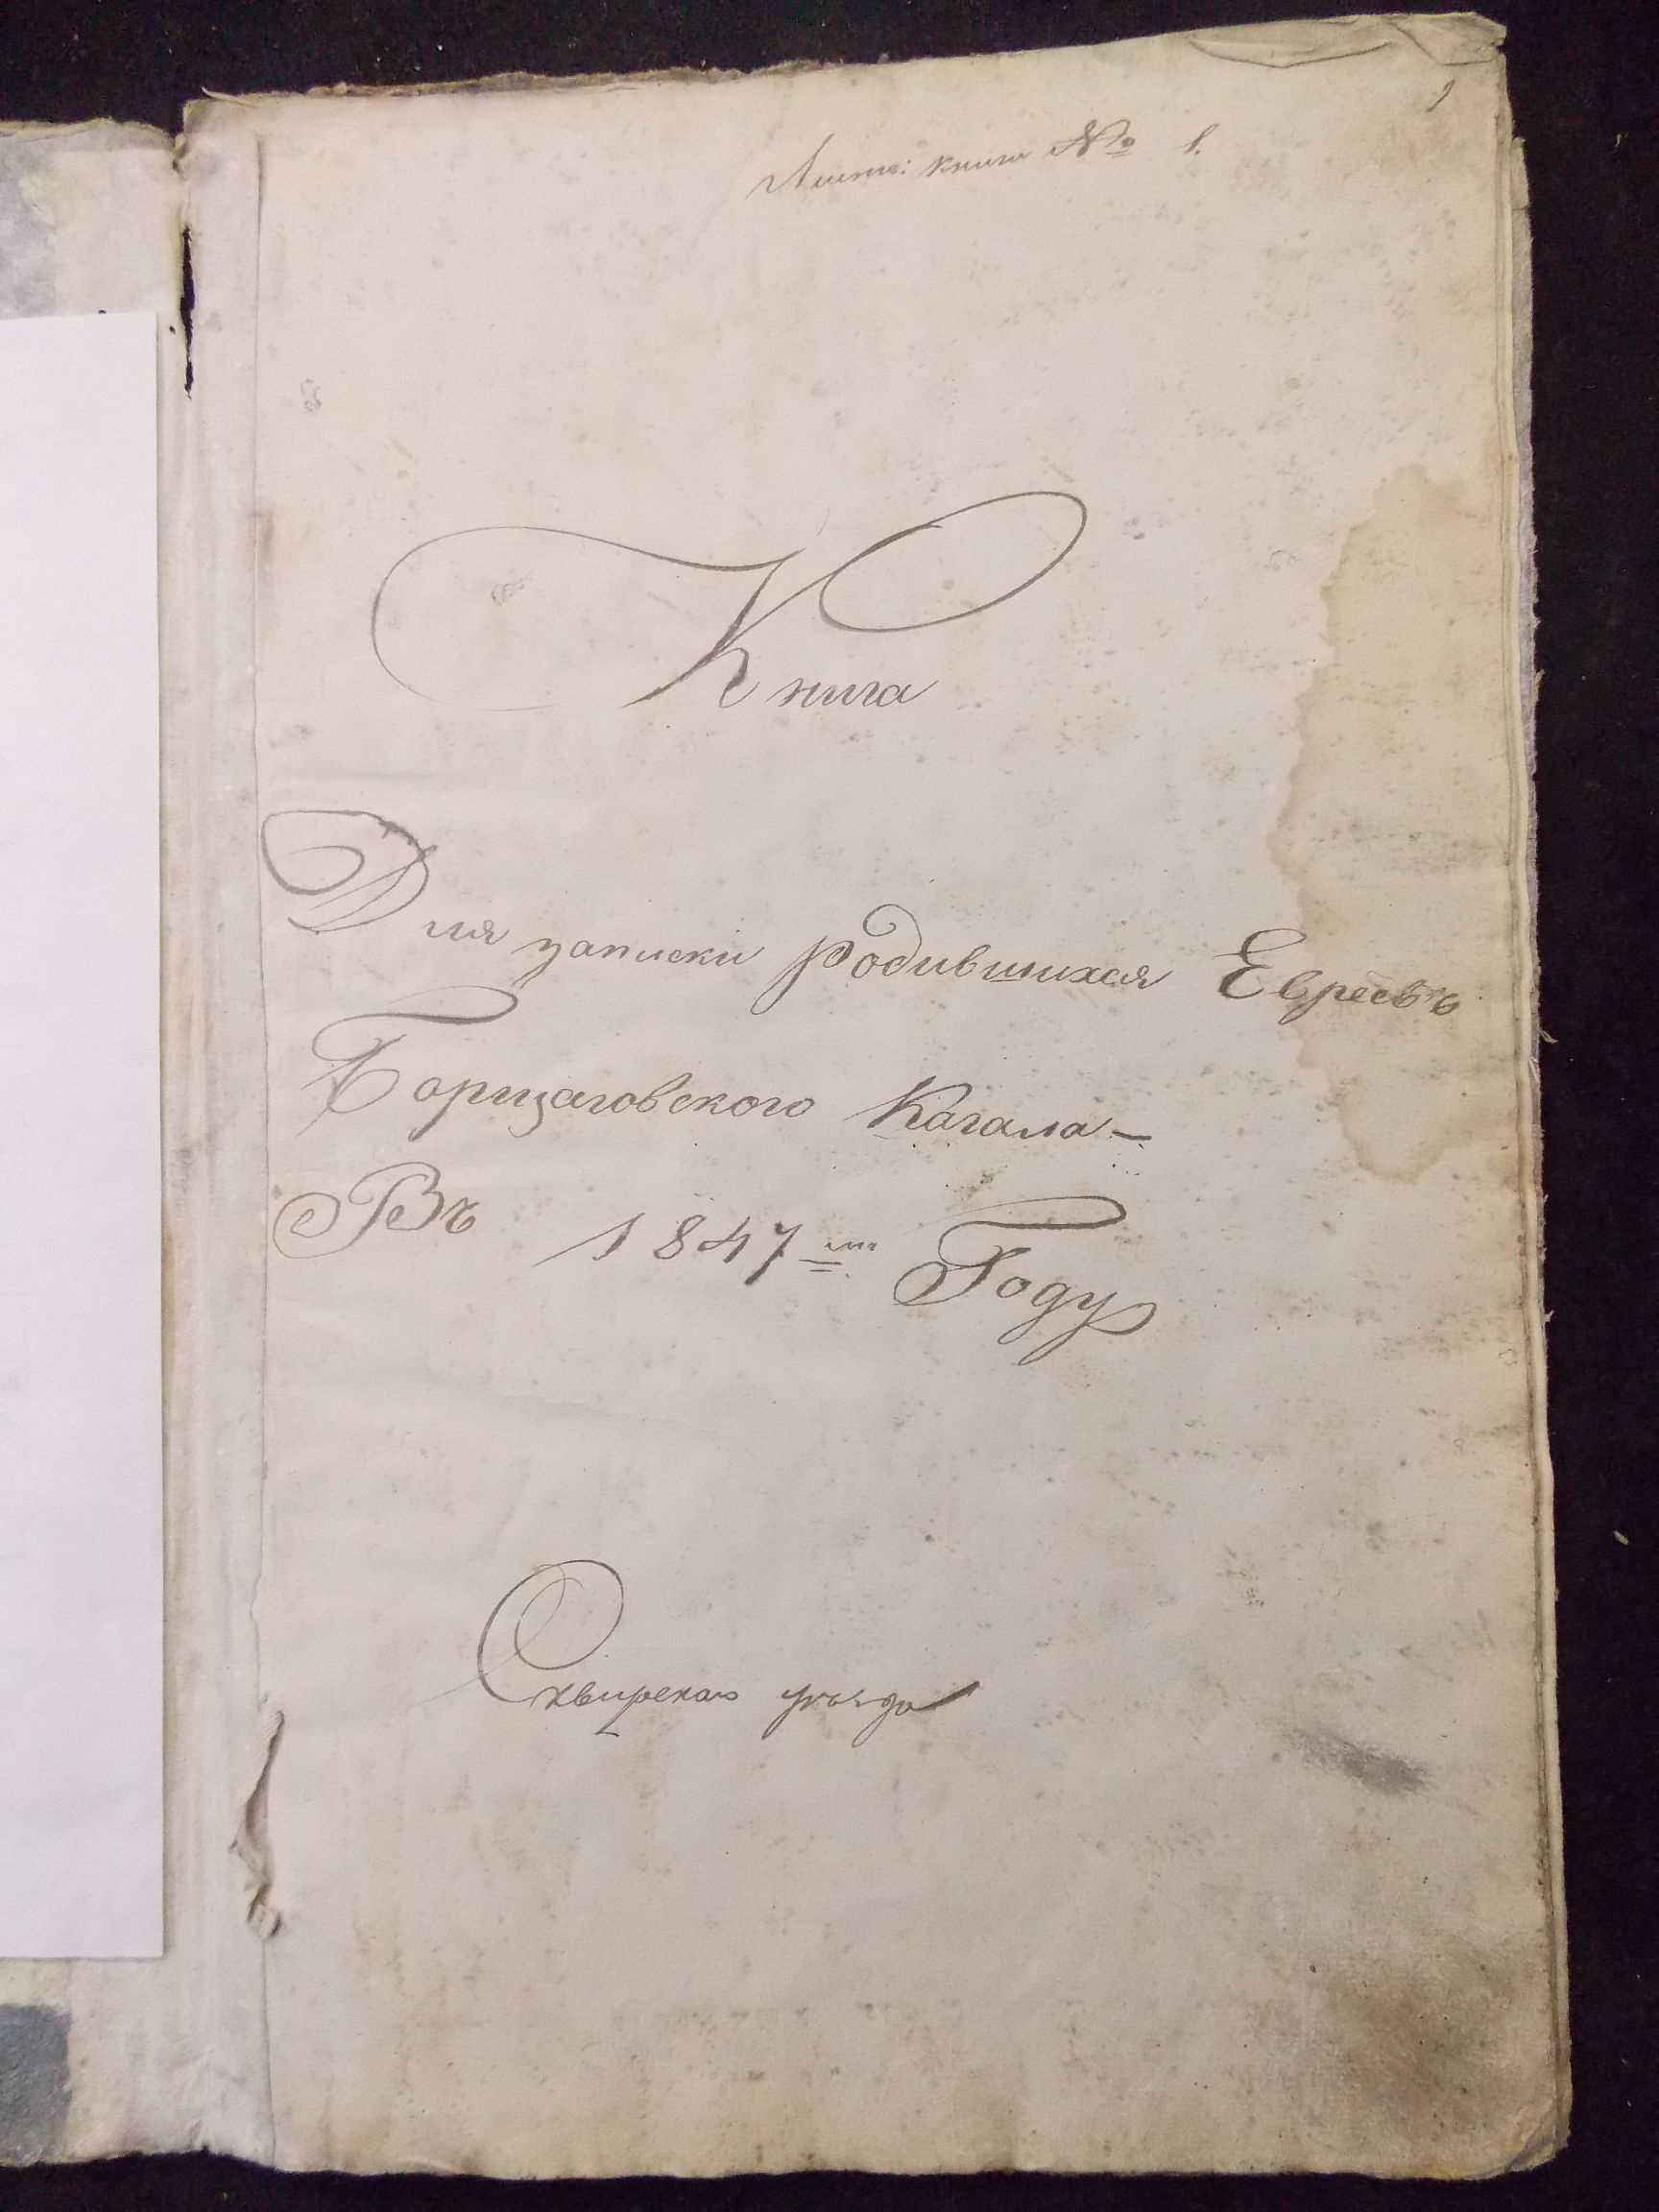 1
книга № 1.
Книга
Для записки родившихся Евреевъ
Борщаговского Кагала-
Въ 1847 м Году
Сквирскаго уѣзда